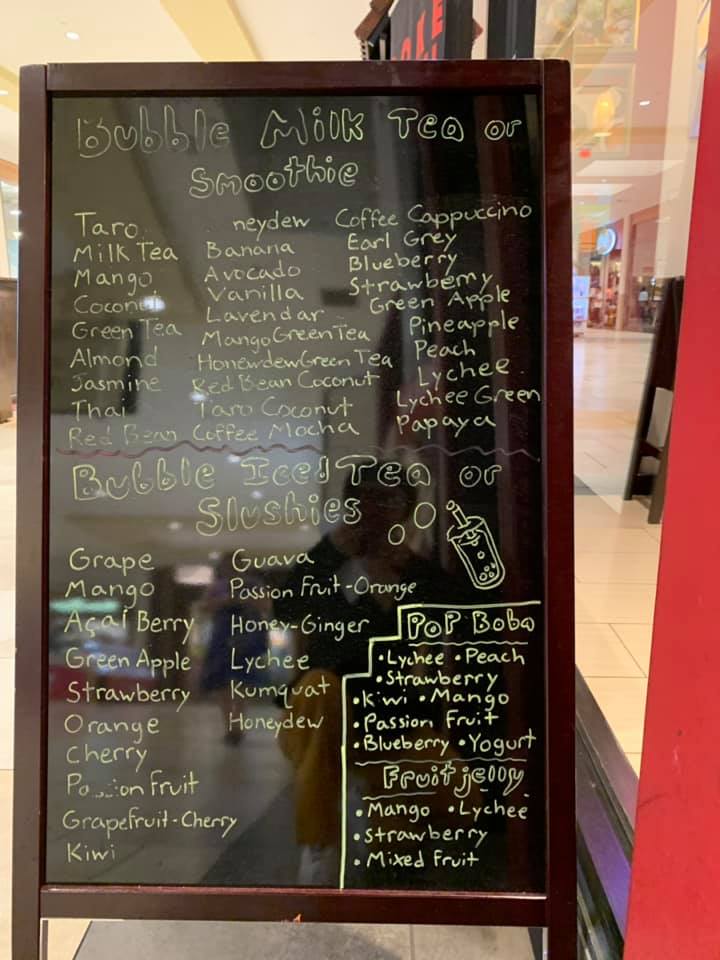 Bubble Milk Tea or
Smoothie
Taro
Milk Tea
Mango
Coconut
Green Tea
Almond
Jasmine
Thai
Red Bean
neydew
Banana
Avocado
Vanilla
Lavendar
Mango Green Tea
Honewdew Green Tea
Red Bean Coconut
Taro Coconut
Coffee Mocha
Coffee Cappuccino
Earl Grey
Blueberry
Strawberry
Green Apple
Pineapple
Peach
Lychee
Lychee Green
Papaya
Bubble Iced Tea or
Slushies
Grape
Mango
Açaí Berry
Green Apple
Strawberry
Orange
Cherry
Pa ion Fruit
Grapefruit-Cherry
Kiwi
Guava
Passion Fruit-Orange
Honey-Ginger
Lychee
Kumquat
Honeydew
PoP Boba
•Lychee •Peach
•Strawberry
•Kiwi •Mango
•Passion Fruit
•Blueberry •Yogurt
Fruit jelly
•Mango •Lychee
•Strawberry
•Mixed Fruit